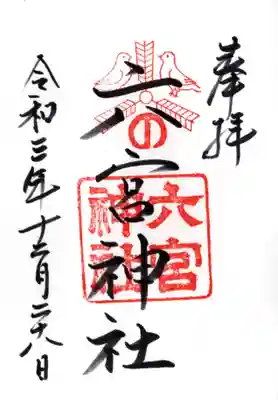 奉拝
六宮神社
の
六宮
神社
令和三年十二月二十八日